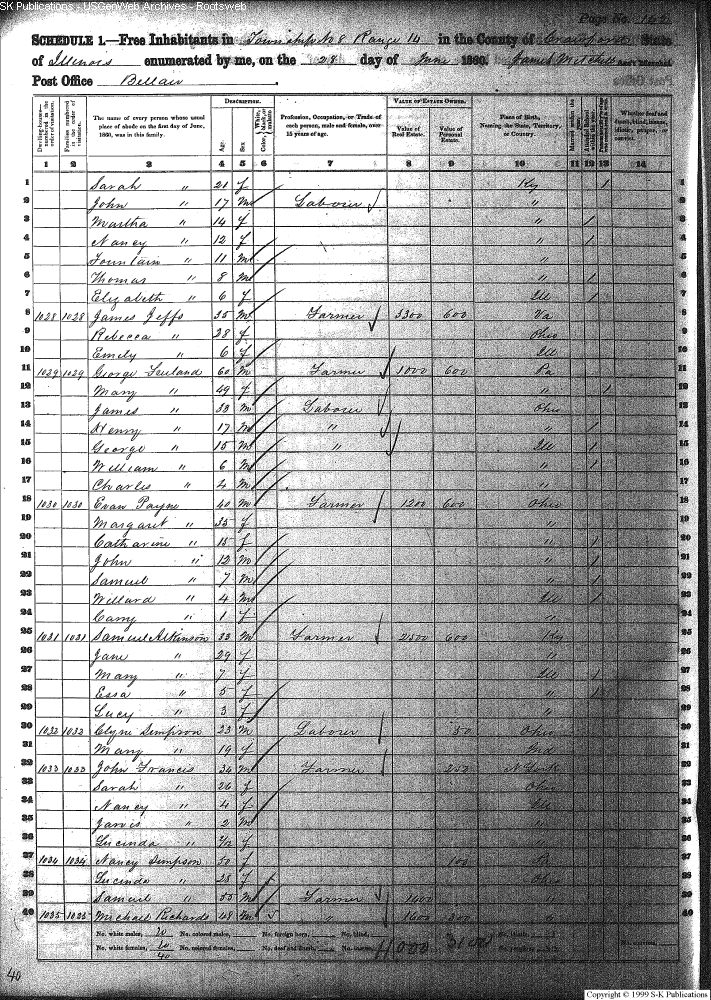 SK Publications - USGenWeb Archives - Rootsweb
Page No. 142
SCHEDULE 1.—Free Inhabitants in Township No 8 Range 14 in the County of Crawford State
of Illinois enumerated by me, on the 28 day of June 1860. James Mitchell Ass't Marshal.
Post Office Bellair
Dwelling-houses—numbered in the order of visitation.
Families numbered in the order of visitation.
The name of every person whose usual place of abode on the first day of June, 1860, was in this family.
DESCRIPTION.
Age.
Sex.
White, black, or mulatto.
Color,
Profession, Occupation, or Trade of each person, male and female, over 15 years of age.
VALUE OF ESTATE OWNED.
Value of Real Estate.
Value of Personal Estate.
Place of Birth, Naming the State, Territory, or Country.
Married within the year.
Attended School within the year.
Whether deaf and dumb, blind, insane, idiotic, pauper, or convict.
1 2 3 4 5 6 7 8 9 10 11 12 13 14
1 Sarah " 21 f Ky 1 1
2 John " 17 m Labourer " 2
3 Martha " 14 f " / 3
4 Nancy " 12 f " / 4
5 Fountain " 11 m " 5
6 Thomas " 8 m " / 6
7 Elizabeth " 6 f Ill / 7
8 1028 1028 James Jeffs 35 m Farmer 3300 600 Va 8
9 Rebecca " 28 f Ohio 9
10 Emily " 6 f Ill 10
11 1029 1029 George 60 m Farmer 1000 600 Pa 11
12 Mary " 49 f " 1 12
13 James " 33 m Labourer Ohio 13
14 Henry " 17 m " " / 14
15 George " 15 m " Ill / 15
16 William " 6 m " / 16
17 Charles " 4 m " 17
18 1030 1030 Evan Payne 40 m Farmer 1200 600 Ohio 18
19 Margaret " 35 f " 19
20 Catharine " 15 f " / 20
21 John " 12 m " / 21
22 Samuel " 7 m " / 22
23 Willard " 4 m Ill / 23
24 Carry " 1 f " 24
25 1031 1031 Samuel Atkinson 33 m Farmer 2500 600 Ky 25
26 Jane " 29 f " 26
27 Mary " 7 f Ill / 27
28 Essa " 5 f " / 28
29 Lucy " 3 f " 29
30 1032 1032 Clyne Simpson 23 m Labourer 50 Ohio 30
31 Mary " 19 f Ind 31
32 1033 1033 John Francis 34 m Farmer 250 N York 32
33 Sarah " 26 f Ohio 33
34 Nancy " 4 f Ill 34
35 Jarvis " 2 m " 35
36 Lucinda " 2/12 f " 36
37 1034 1034 Nancy Simpson 50 f 100 Pa 37
38 Lucinda " 23 f Ohio 38
39 Samuel " 55 m Farmer 1400 39
40 1035 1035 Michael Richards 48 m " 1600 300 40
No. white males, 20 No. colored males, No. foreign born, No. blind,
No. white females, 20 No. colored females, No. deaf and dumb, No. insane,
40
40
Copyright © 1999 S-K Publications